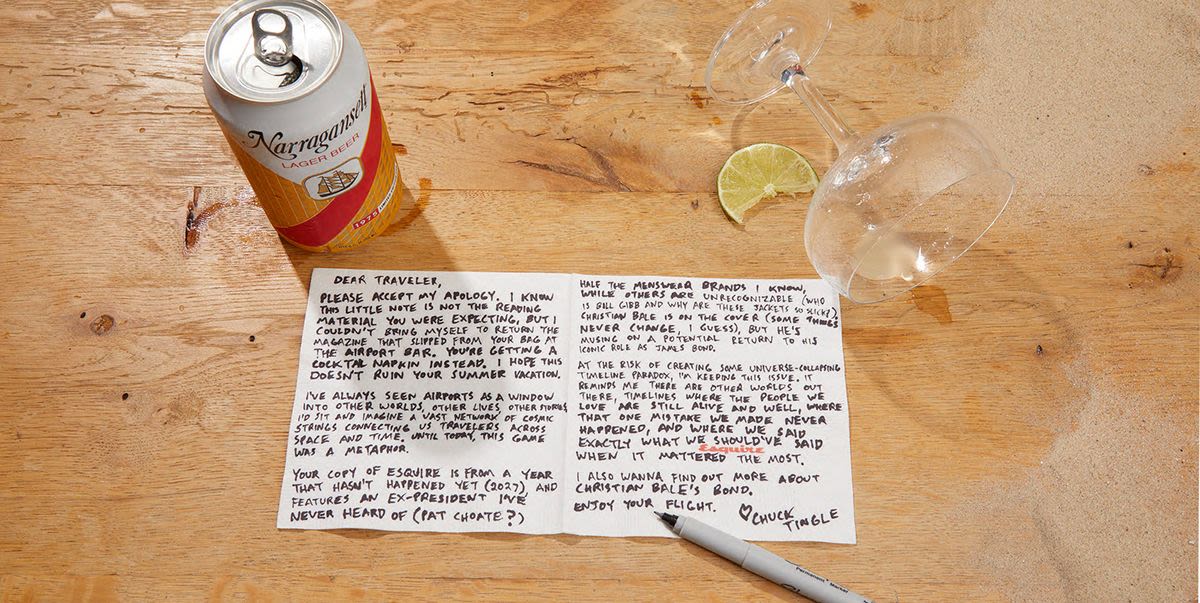 Narragansett
LAGER BEER
1975
DEAR TRAVELER,
PLEASE ACCEPT MY APOLOGY. I KNOW
THIS LITTLE NOTE IS NOT THE READING
MATERIAL YOU WERE EXPECTING, BUT I
COULDN'T BRING MYSELF TO RETURN THE
MAGAZINE THAT SLIPPED FROM YOUR BAG AT
THE AIRPORT BAR. YOU'RE GETTING A
COCKTAIL NAPKIN INSTEAD. I HOPE THIS
DOESN'T RUIN YOUR SUMMER VACATION.
I'VE ALWAYS SEEN AIRPORTS AS A WINDOW
INTO OTHER WORLDS, OTHER LIVES, OTHER STORIES.
I'D SIT AND IMAGINE A VAST NETWORK OF COSMIC
STRINGS CONNECTING US TRAVELERS ACROSS
SPACE AND TIME. UNTIL TODAY, THIS GAME
WAS A METAPHOR.
YOUR COPY OF ESQUIRE IS FROM A YEAR
THAT HASN'T HAPPENED YET (2027) AND
FEATURES AN EX-PRESIDENT I'VE
NEVER HEARD OF (PAT CHOATE?)
HALF THE MENSWEAR BRANDS I KNOW,
WHILE OTHERS ARE UNRECOGNIZABLE (WHO
IS BILL GIBB AND WHY ARE THESE JACKETS SO SLICK?).
CHRISTIAN BALE IS ON THE COVER (SOME THINGS
NEVER CHANGE, I GUESS), BUT HE'S
MUSING ON A POTENTIAL RETURN TO HIS
ICONIC ROLE AS JAMES BOND.
AT THE RISK OF CREATING SOME UNIVERSE-COLLAPSING
TIMELINE PARADOX, I'M KEEPING THIS ISSUE. IT
REMINDS ME THERE ARE OTHER WORLDS OUT
THERE, TIMELINES WHERE THE PEOPLE WE
LOVE ARE STILL ALIVE AND WELL, WHERE
THAT ONE MISTAKE WE MADE NEVER
HAPPENED, AND WHERE WE SAID
EXACTLY WHAT WE SHOULD'VE SAID
Esquire
WHEN IT MATTERED THE MOST.
I ALSO WANNA FIND OUT MORE ABOUT
CHRISTIAN BALE'S BOND.
ENJOY YOUR FLIGHT.
♡CHUCK
TINGLE
Permanent Marker